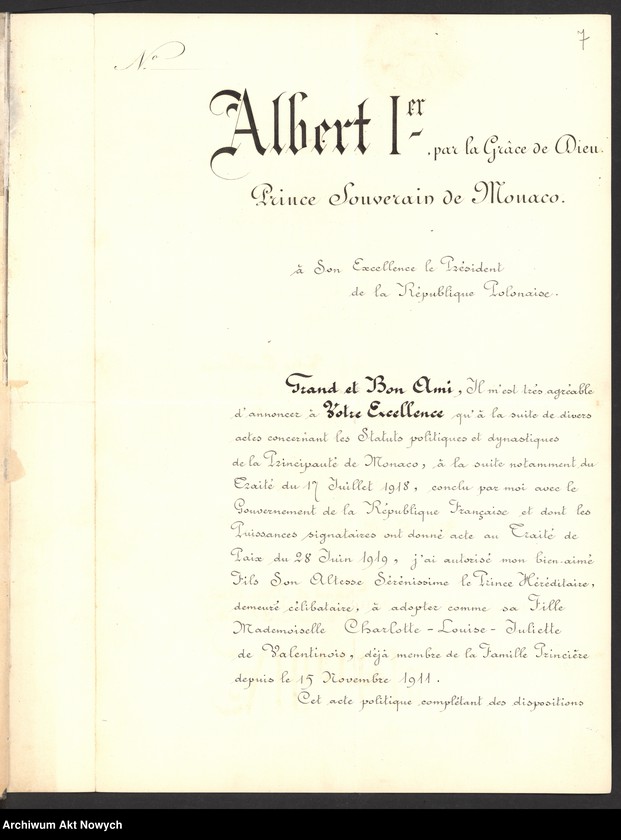 7
N°
Albert Ier par la Grâce de Dieu.
Prince Souverain de Monaco.
à Son Excellence le Président
de la République Polonaise.
Grand et Bon Ami, Il m'est très agréable
d'annoncer à Votre Excellence qu'à la suite de divers
actes concernant les Statuts politiques et dynastiques
de la Principauté de Monaco, à la suite notamment du
Traité du 17 Juillet 1918, conclu par moi avec le
Gouvernement de la République Française et dont les
Puissances signataires ont donné acte au Traité de
Paix du 28 Juin 1919, j'ai autorisé mon bien-aimé
Fils Son Altesse Sérénissime le Prince Héréditaire,
demeuré célibataire, à adopter comme sa Fille
Mademoiselle Charlotte-Louise-Juliette
de Valentinois, déjà membre de la Famille Princière
depuis le 15 Novembre 1911.
Cet acte politique complétant des dispositions
Archiwum Akt Nowych